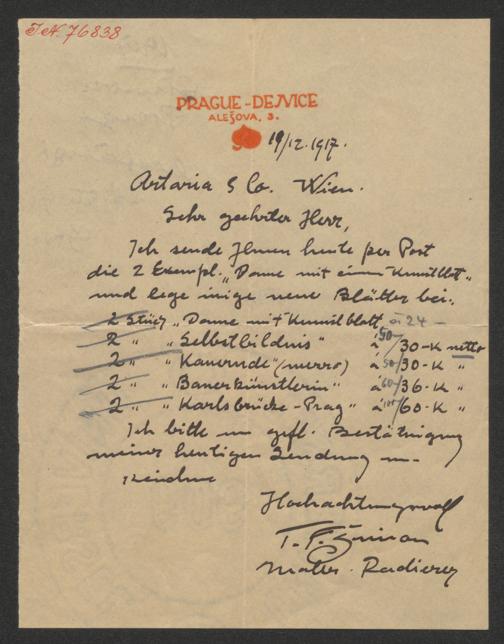 I.N. 76838
PRAGUE-DEJVICE
ALEŠOVA, 3.
19/12.1917.
Artaria & Co. Wien.
Sehr geehrter Herr,
Ich sende Ihnen heute per Post
die 2 Exempl. „Dame mit einem Kunstblatt"
und lege einige neue Blätter bei.
2 Stück „Dame mit Kunstblatt à 24 –
2 " „Selbstbildnis" à 50/30-K netto
2 " „Kauernde" à 50/30-K "
2 " " à 60/36-K "
2 " „Karlsbrücke-Prag" à 100/60-K "
Ich bitte um gefl. Bestätigung
meiner heutigen Sendung u.
zeichne
Hochachtungsvoll
T. F. Šimon
Maler-Radierer